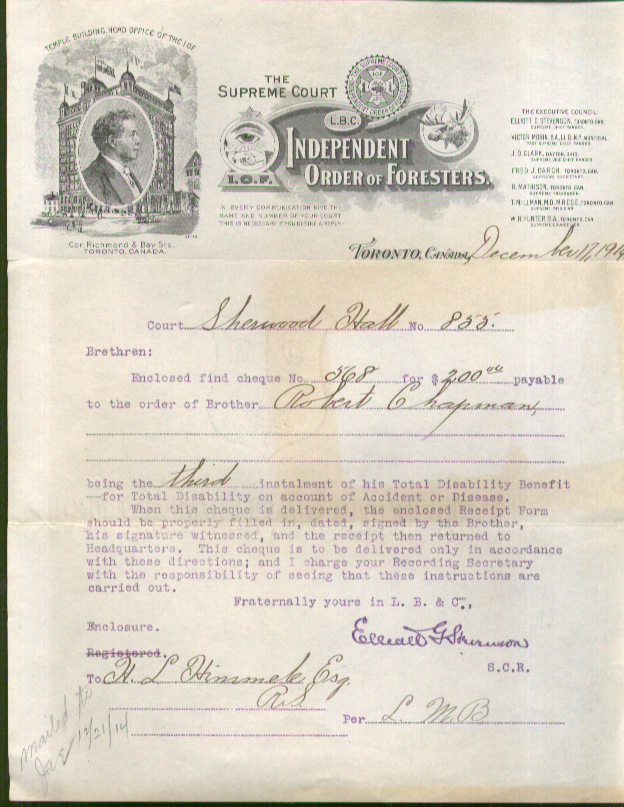 TEMPLE BUILDING, HEAD OFFICE OF THE I.O.F.
Cor. Richmond & Bay Sts.
TORONTO, CANADA.
THE
SUPREME COURT
L.B.C.
INDEPENDENT
ORDER OF FORESTERS.
I.O.F.
IN EVERY COMMUNICATION GIVE THE
NAME AND NUMBER OF YOUR COURT
THIS IS NECESSARY IF YOU DESIRE A REPLY.
THE EXECUTIVE COUNCIL
ELLIOTT G. STEVENSON, TORONTO, CAN.
SUPREME CHIEF RANGER
VICTOR MORIN, B.A., LL.D., N.P., MONTREAL,
PAST SUPREME CHIEF RANGER
J. D. CLARK, DAYTON, OHIO,
SUPREME VICE CHIEF RANGER
FRED. J. DARCH, TORONTO, CAN.
SUPREME SECRETARY
R. MATHISON, TORONTO, CAN.
SUPREME TREASURER
T. MILLMAN, M.D., M.R.C.S.E., TORONTO, CAN.
SUPREME PHYSICIAN
W. H. HUNTER, B.A., TORONTO, CAN.
SUPREME COUNSELLOR
TORONTO, CANADA, December 17, 1914
Court Sherwood Hall No 855.
Brethren:
Enclosed find cheque No. 568 for $ 200.00 payable
to the order of Brother Robert Chapman,
being the third instalment of his Total Disability Benefit
—for Total Disability on account of Accident or Disease.
When this cheque is delivered, the enclosed Receipt Form
should be properly filled in, dated, signed by the Brother,
his signature witnessed, and the receipt then returned to
Headquarters. This cheque is to be delivered only in accordance
with these directions; and I charge your Recording Secretary
with the responsibility of seeing that these instructions are
carried out.
Fraternally yours in L. B. & C.,
Enclosure.
Elliott G Stevenson
Registered.
S.C.R.
To H. L. Himmele, Esq.
R.S.
Per L. M. B
mailed to
12/21/14